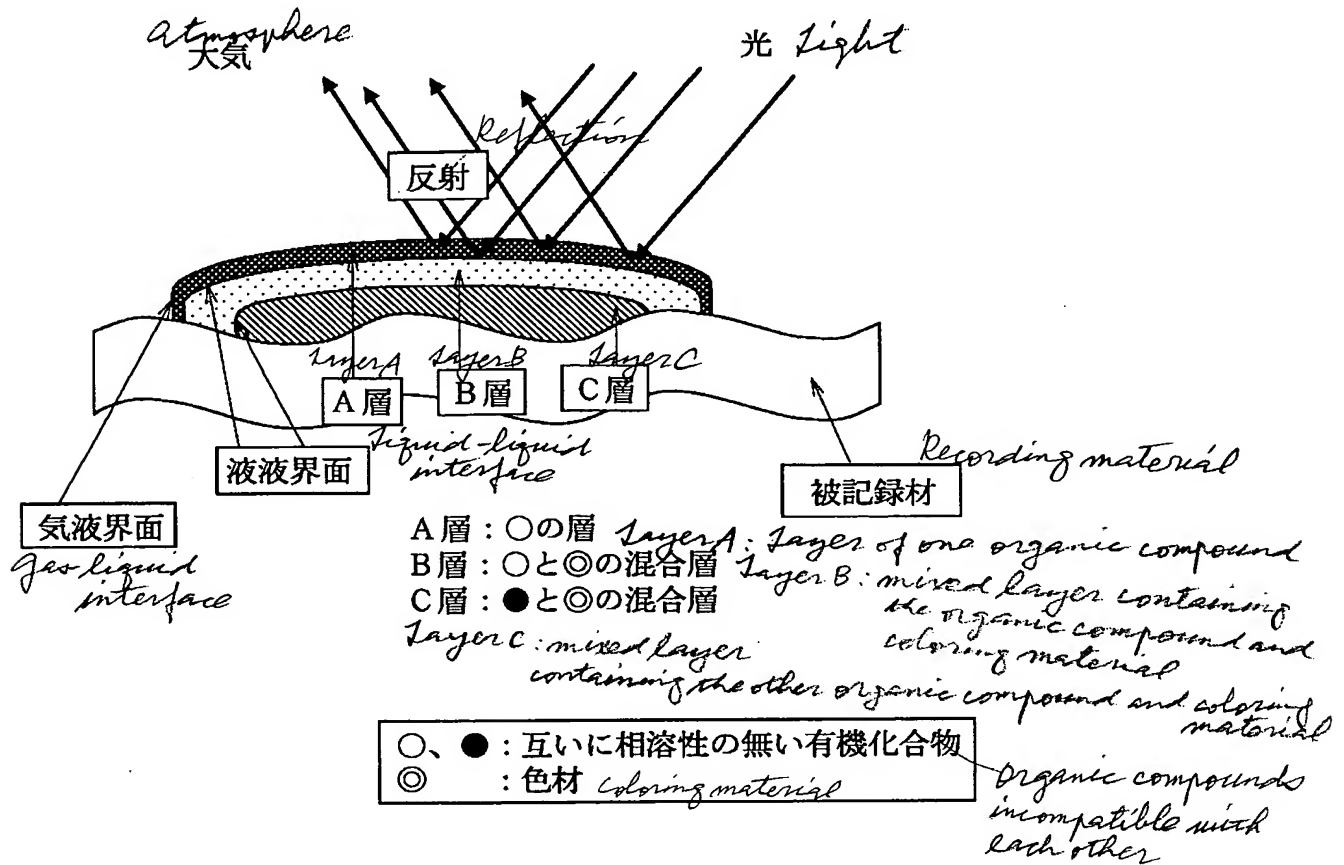 Atmosphere
大気
光 Light
Reflection
反射
Layer A
Layer B
Layer C
A層
B層
C層
Liquid-liquid
interface
液液界面
Recording material
被記録材
気液界面
Gas liquid
interface
A層：○の層 Layer A: Layer of one organic compound
B層：○と◎の混合層 Layer B: mixed layer containing
the organic compound and
coloring material
C層：●と◎の混合層
Layer C: mixed layer
containing the other organic compound and coloring
material
○、●：互いに相溶性の無い有機化合物
◎　：色材 coloring material
Organic compounds
incompatible with
each other